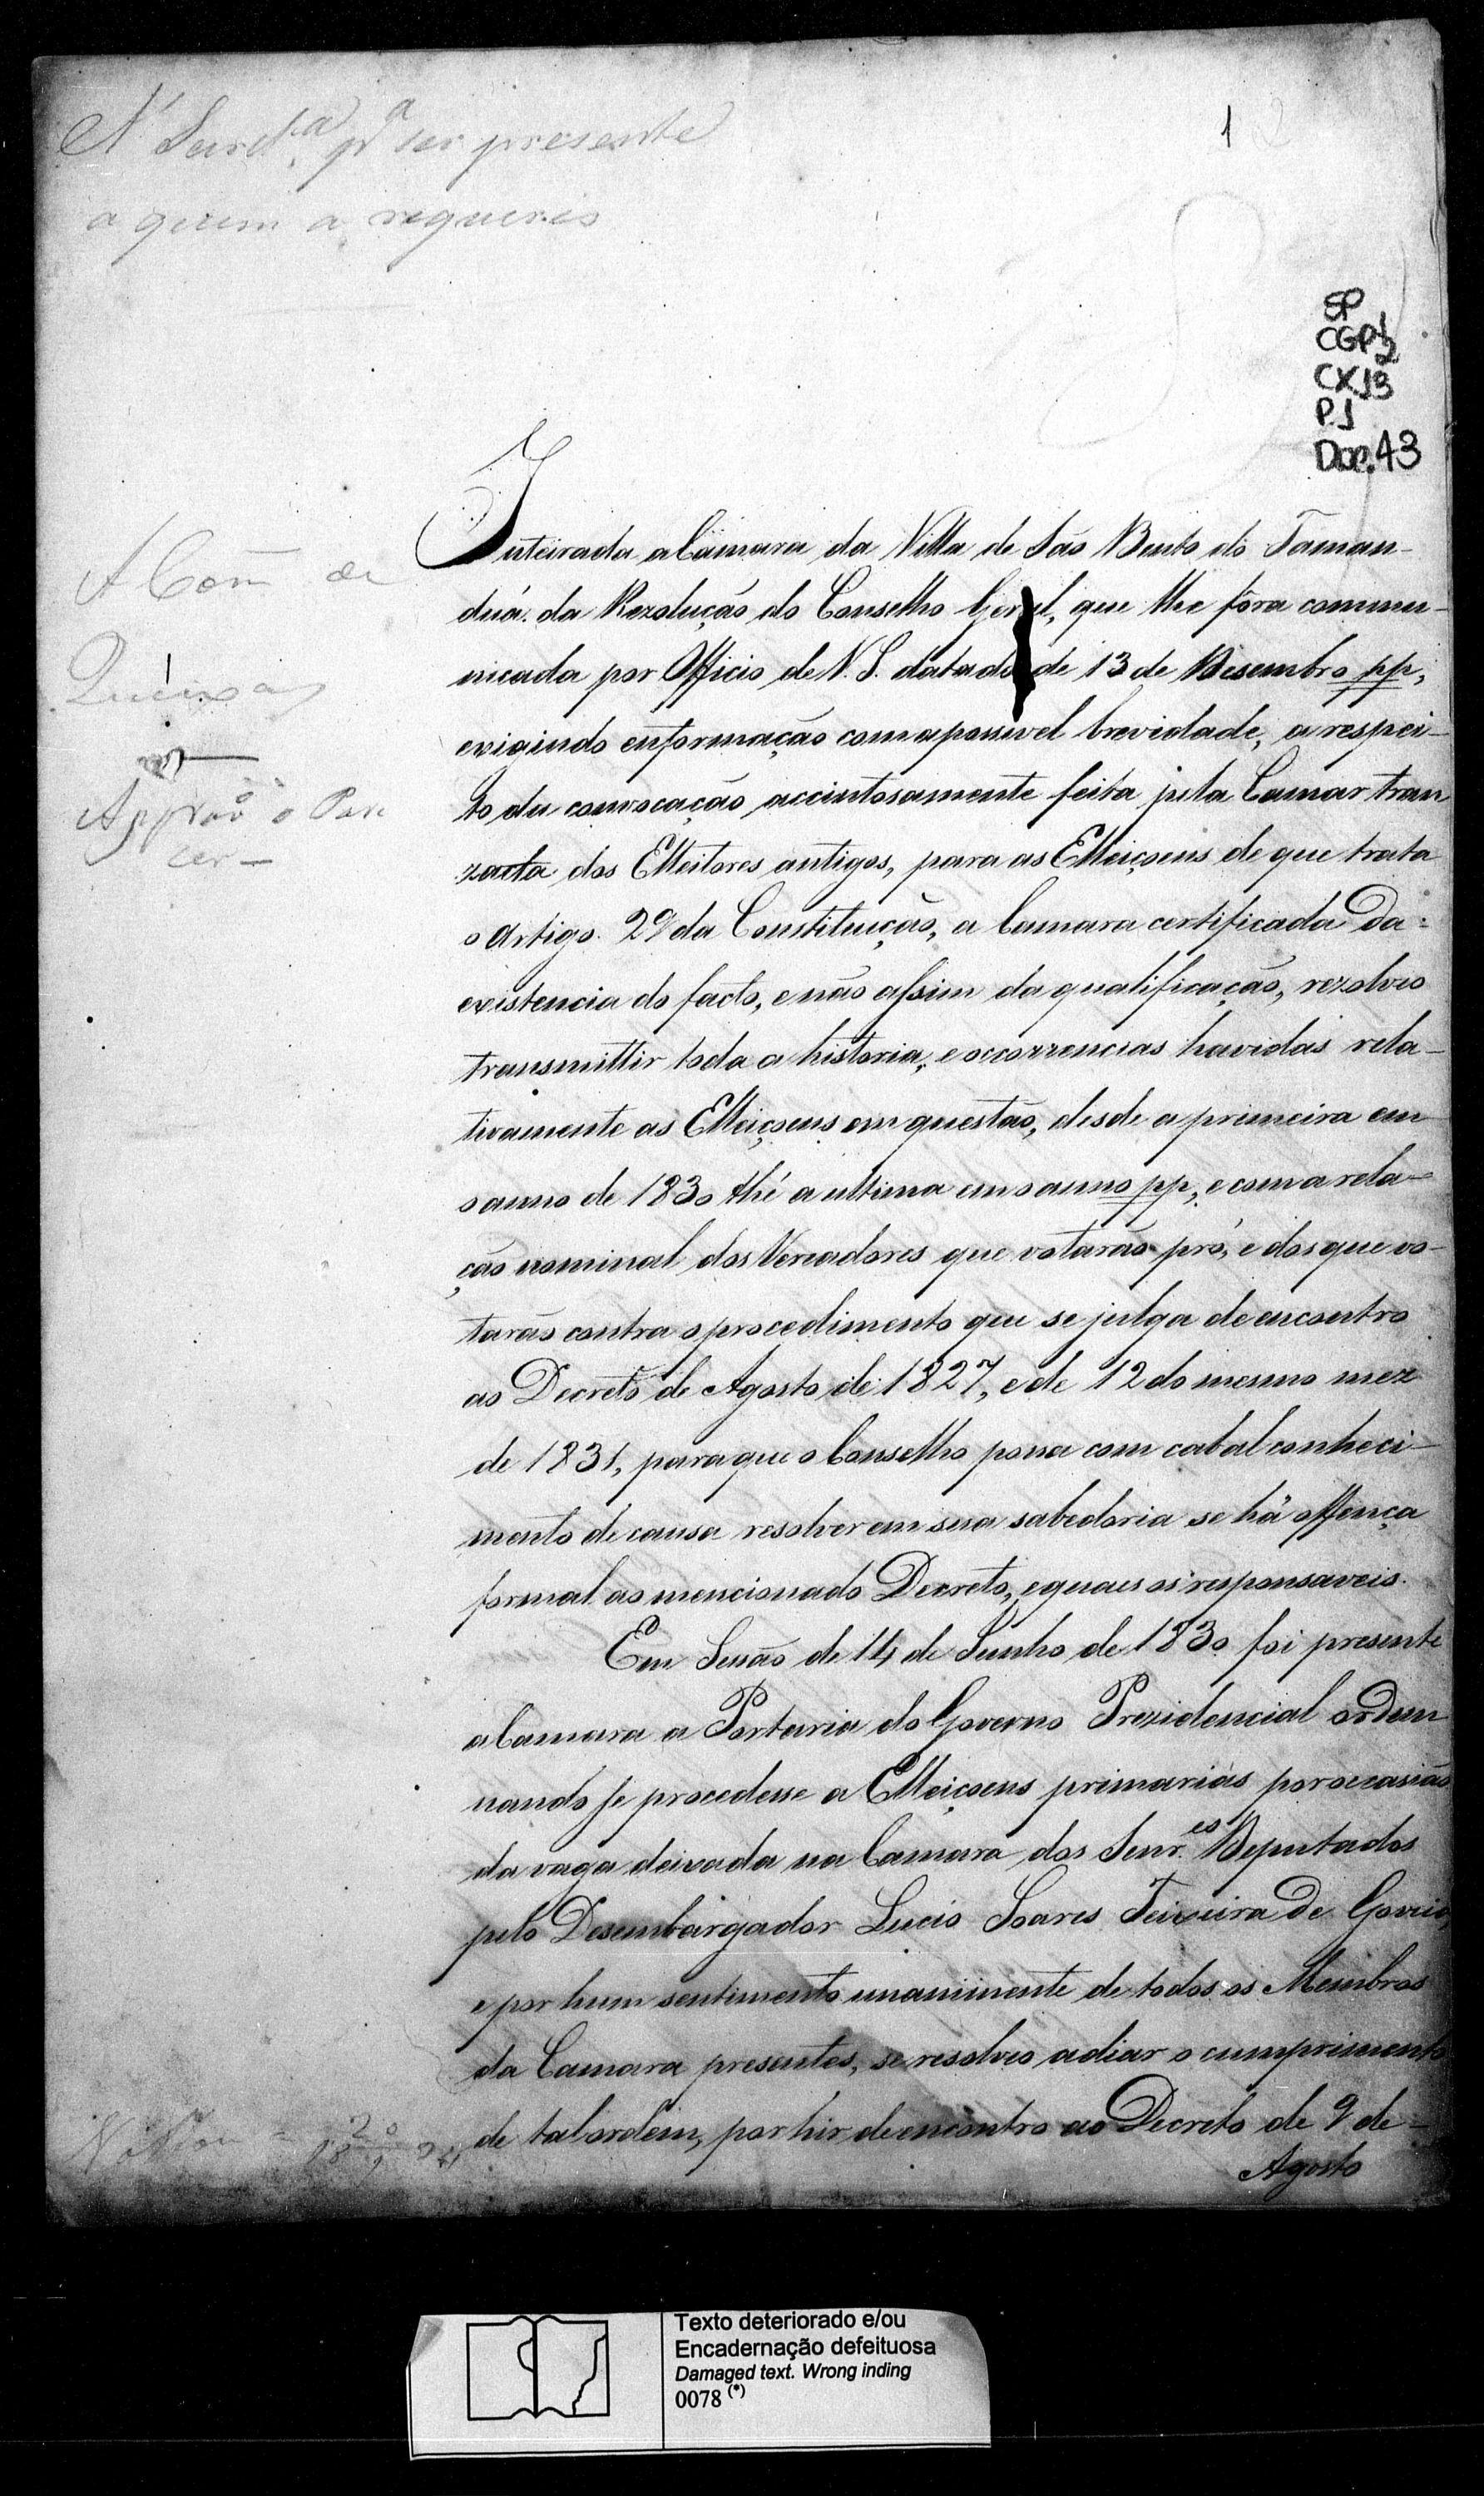 A' Secret.ª pª ser presente
a quem a requereo
1
SP
CGP1
2
CX.13
P.1
Doc.43
A Com de
Queixas
Approv o Pare
cer —
Inteirada a Câmara da Villa de São Bento do Taman-
duá da Rezolução do Conselho Geral, que lhe fôra commu-
nicada por Officio de V. S. datado de 13 de Desembro pp,
exigindo enformação com a possivel brevidade, a respei-
to da convocação accintosamente feita pela Camar tran
zacta dos Elleitores antigos, para as Elleiçoens de que trata
o Artigo. 29 da Constituição, a Camara certificada Da
existencia do facto, e não assim da qualificação, rezolveo
transmittir toda a historia, e occorrencias havidas rela-
tivamente as Elleiçoens em questão, desde a primeira em
o anno de 1830 thé a ultima em o anno pp, e com a rela-
ção nominal dos Vereadores que votarão pró, e dos que vo-
tarão contra o procedimento que se julga de encontro
ao Decreto de Agosto de 1827, e de 12 do mesmo mez
de 1831, para que o Conselho possa com cabal conheci-
mento de causa resolver em sua sabedoria se há offença
formal ao mencionado Decreto, e quaes os responsaveis.
Em Sessão de 14 de Junho de 1830 foi presente
a Camara a Portaria do Governo Prezidencial ordem
nando se procedesse a Elleiçoens primarias por occasião
da vaga deixada na Camara dos Senr.es Deputados
pelo Desembargador Lucio Soares Teixeira De Gouvia,
e por hum sentimento unanimente de todos os Membros
da Camara presentes, se resolveo adiar o cumprimento
de tal ordem, por hir de encontro ao Decreto de 9 de
Agosto
Texto deteriorado e/ou
Encadernação defeituosa
Damaged text. Wrong inding
0078 (*)